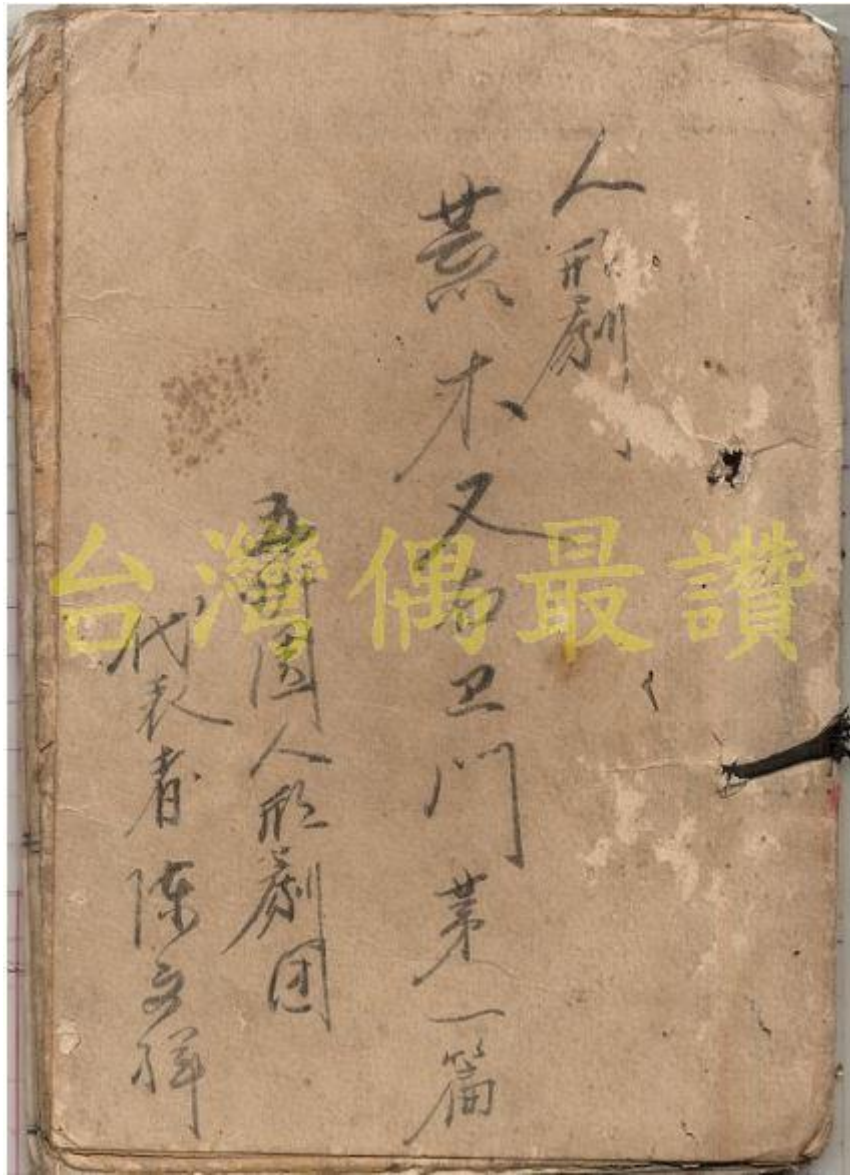 人形劇
荒木又右卫門 第一篇
五州園人形劇団
代表者 陳文祥
台灣偶最讚